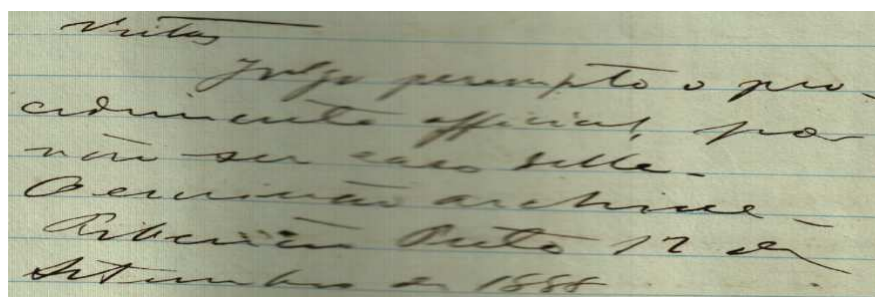 Vistos
Julgo perempto o pro-
cedimento official, por
não ser caso delle.
O escrivão archive.
Ribeirão Preto 12 de
Setembro de 1888